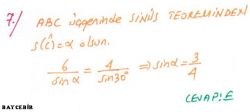 7./ ABC üçgeninde SİNÜS TEOREMİNDEN
s(Ĉ)=α olsun.
6/sinα = 4/sin30° ⇒ sinα = 3/4
CEVAP:E
BAYCEBİR